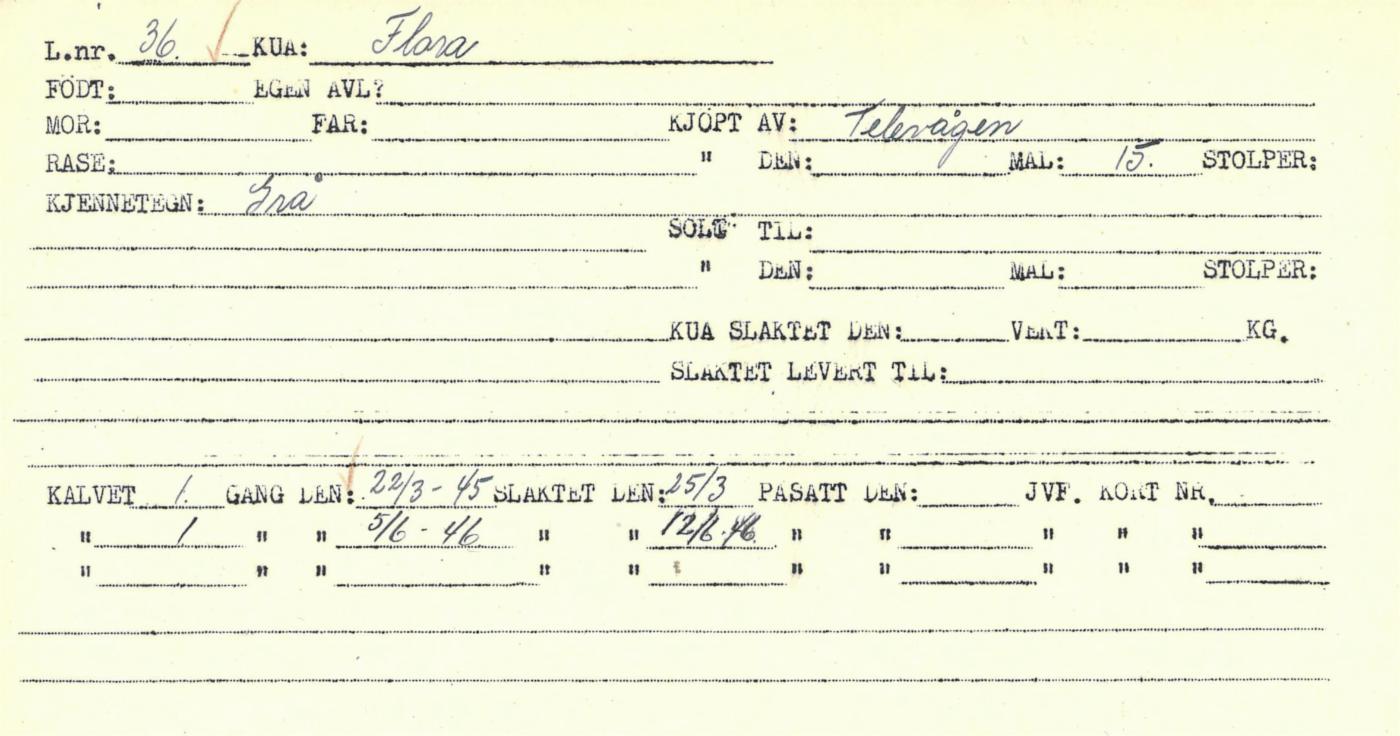 L.nr. 36. KUA: Flora
FÖDT: EGEN AVL?
MOR: FAR: KJÖPT AV: Televågen
RASE: " DEN: MAL: 15. STOLPER:
KJENNETEGN: Grå
SOLGT TIL:
" DEN: MAL: STOLPER:
KUA SLAKTET DEN: VEKT: KG.
SLAKTET LEVERT TIL:
KALVET 1. GANG DEN: 22/3-45 SLAKTET DEN: 25/3 PASATT DEN: JVF. KORT NR.
" 1 " " 5/6-46 " " 12/6.46. " " " " "
" " " " " " " " " "